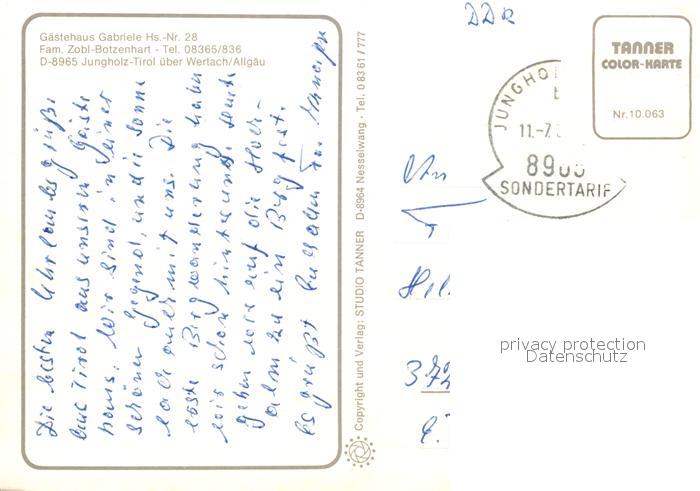 Gästehaus Gabriele Hs.-Nr. 28
Fam. Zobl-Botzenhart - Tel. 08365/836
D-8965 Jungholz-Tirol über Wertach/Allgäu
Die besten Uhrlaubsgrüße
aus Tirol aus unsrem Gäste
haus. Wir sind in einer
schönen Gegend, und die Sonne
lacht mit uns. Die
erste Bergwanderung haben
wir schon hinter uns. Heute
gehen wir auf die
Alm zu ein Bergfest.
Es grüßt
Copyright und Verlag: STUDIO TANNER D-8964 Nesselwang - Tel. 0 83 61 / 777
DDR
TANNER
COLOR-KARTE
Nr. 10.063
JUNGHO
11.-7.
SONDERTARIF
privacy protection
Datenschutz